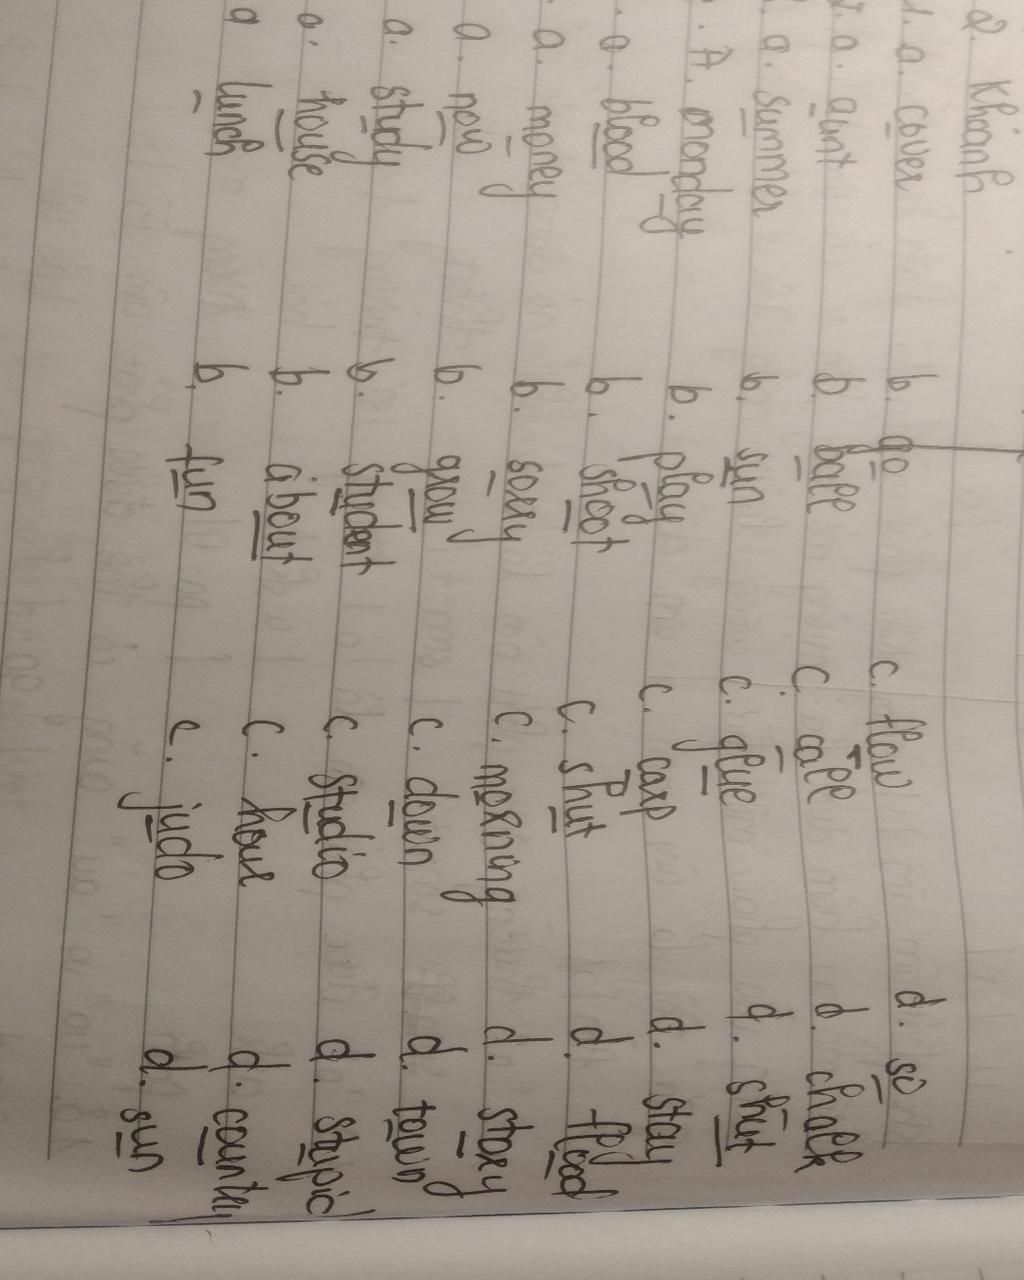 2. Khoanh
1. a. cover b. go c. flow d. so
2. a. aunt b ball c. call d. chalk
a. summer b. sun c. glue d. shut
. A. monday b. play c. carp d. stay
. a. blood b. shoot c. shut d. flood
a. money b. sorry c. morning d. story
a. now b. grow c. down d. town
a. study b. student c. studio d. stupid
a. house b. about c. hour d. country
a lunch b. fun c. judo d. sun